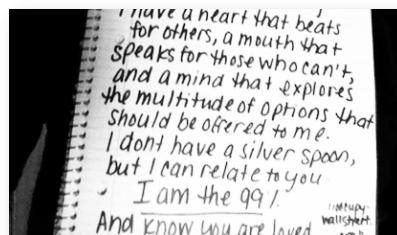 I have a heart that beats
for others, a mouth that
speaks for those who can't,
and a mind that explores
the multitude of options that
should be offered to me.
I dont have a silver spoon,
but I can relate to you
I am the 99%
And know you are loved
occupy
wallstreet.